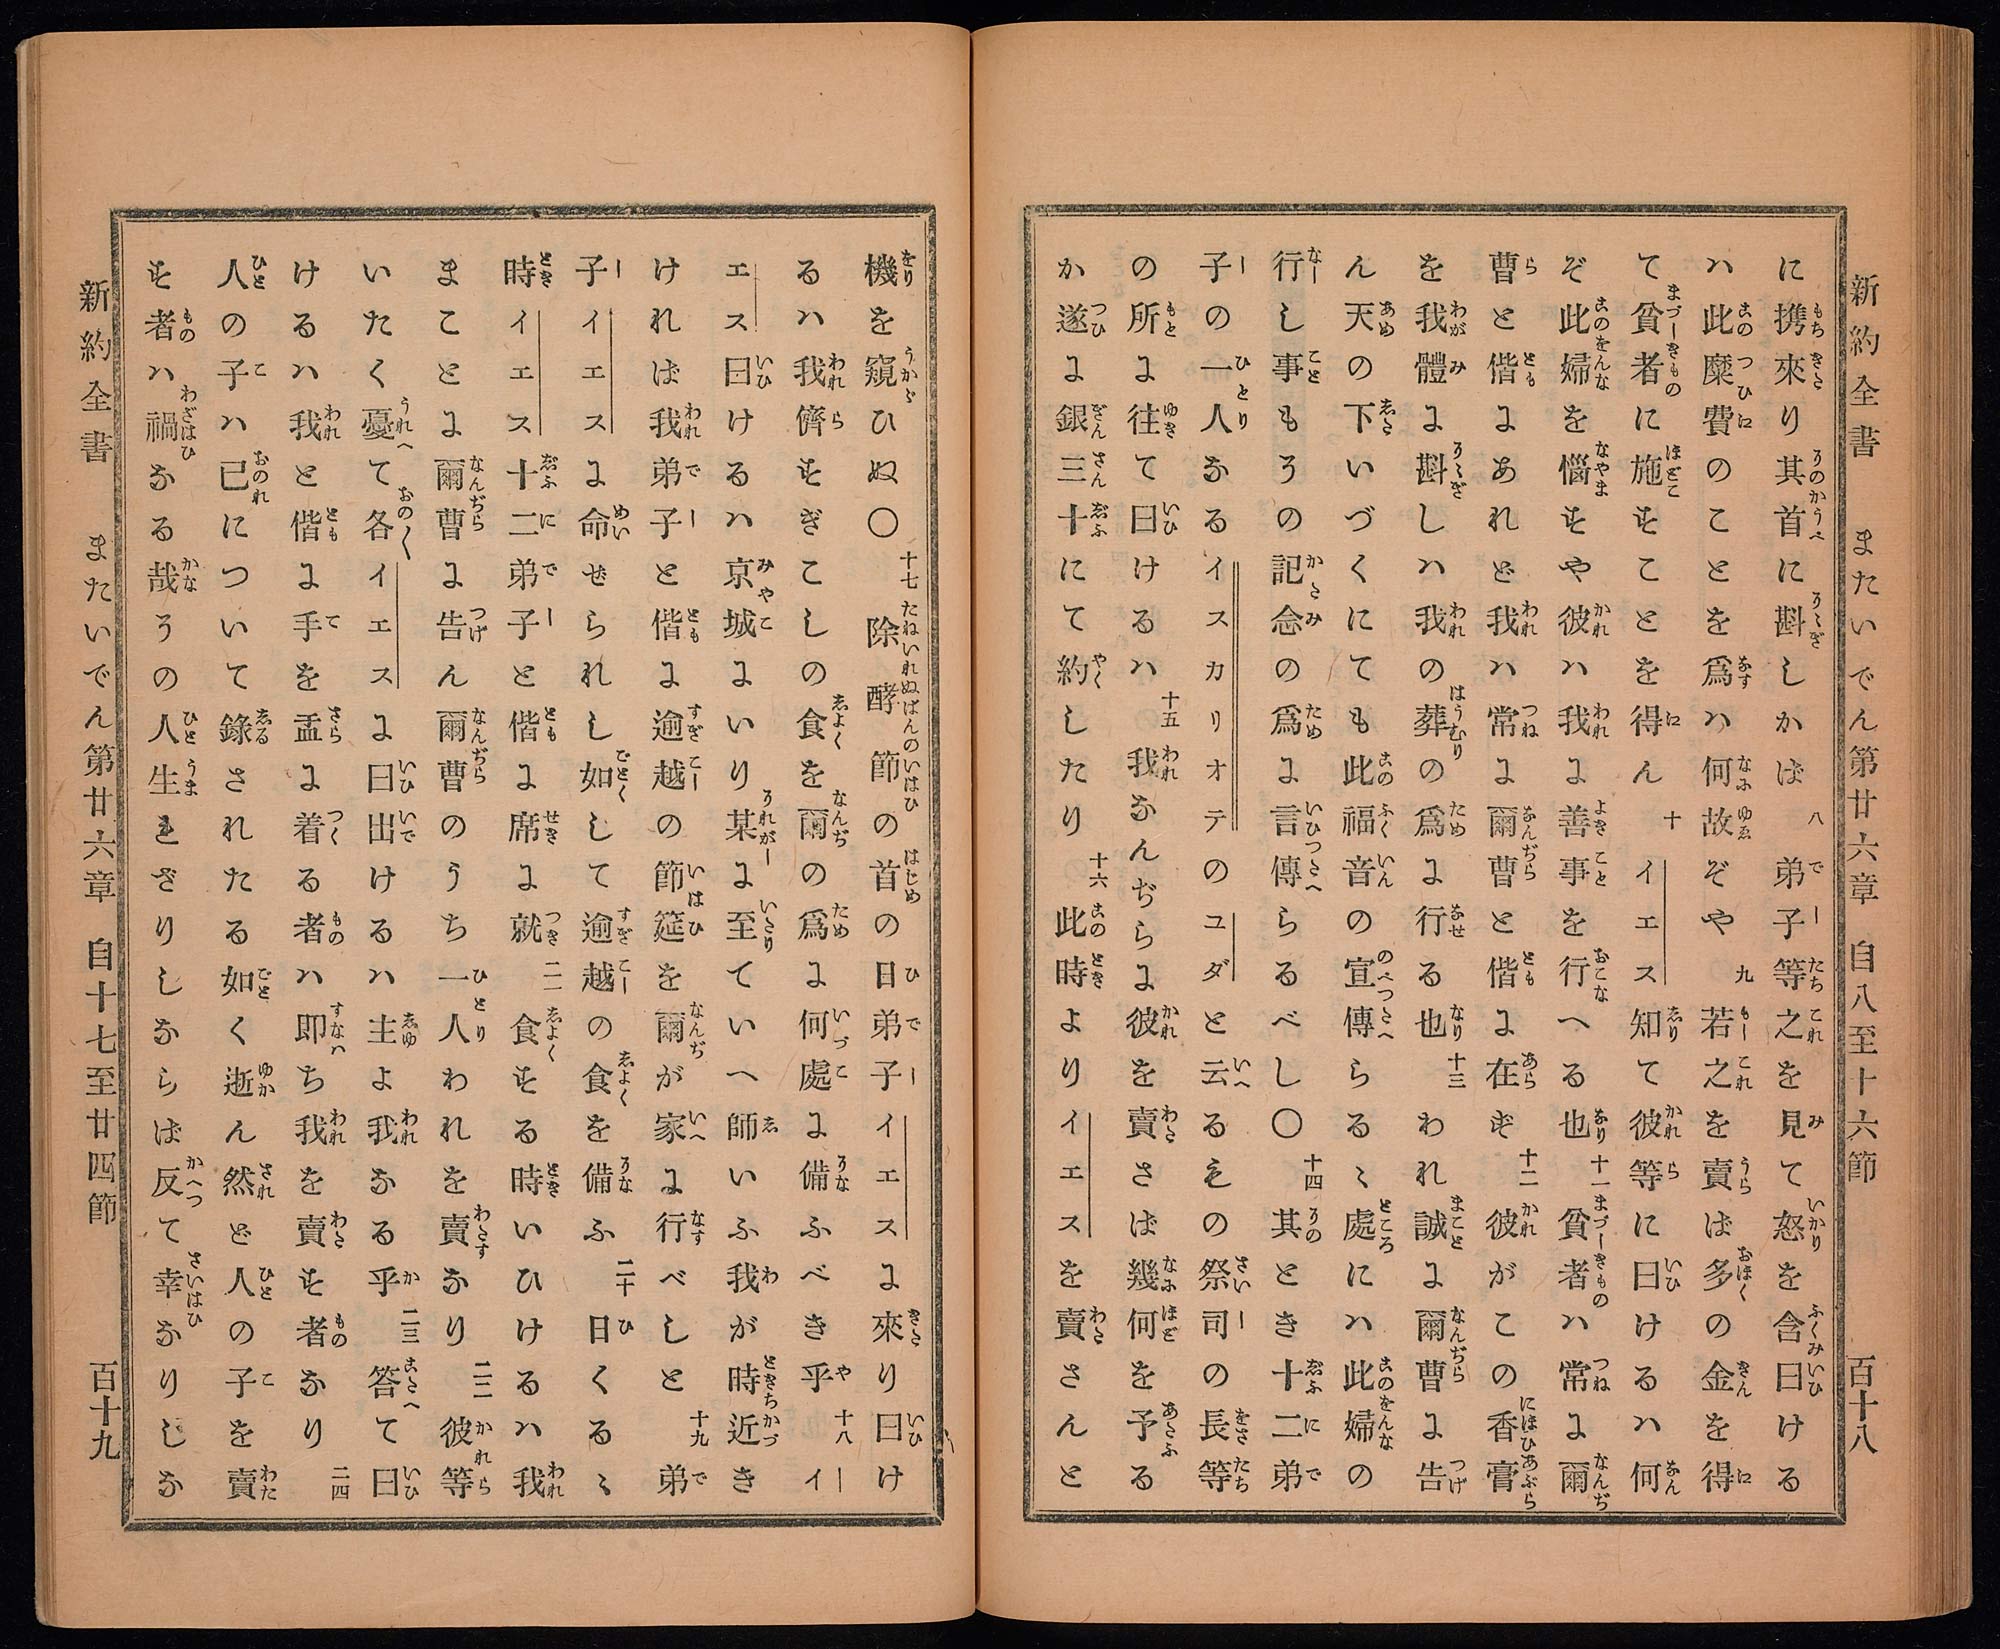 新約全書　またいでん第廿六章　自八至十六節　百十八
に携來り其首に斟しかば 八 弟子等之を見て怒を含曰ける
ハ此糜費のことを爲ハ何故ぞや 九 若之を賣ば多の金を得
て貧者に施すことを得ん 十 イエス知て彼等に曰けるハ何
ぞ此婦を惱すや彼ハ我に善事を行へる也 十一 貧者ハ常に爾
曹と偕にあれど我ハ常に爾曹と偕に在ず 十二 彼がこの香膏
を我體に斟しハ我の葬の爲に行る也 十三 われ誠に爾曹に告
ん天の下いづくにても此福音の宣傳らるゝ處にハ此婦の
行し事もその記念の爲に言傳らるべし〇 十四 其とき十二弟
子の一人なるイスカリオテのユダと云るもの祭司の長等
の所に往て曰けるハ 十五 我なんぢらに彼を賣さば幾何を予る
か遂に銀三十にて約したり 十六 此時よりイエスを賣さんと
機を窺ひぬ〇 十七 除酵節の首の日弟子イエスに來り曰け
るハ我儕すぎこしの食を爾の爲に何處に備ふべき乎 十八 イ
エス曰けるハ京城にいり某に至ていへ師いふ我が時近き
ければ我弟子と偕に逾越の節筵を爾が家に行べしと 十九 弟
子イエスに命ぜられし如して逾越の食を備ふ 二十 日くるゝ
時イエス十二弟子と偕に席に就 二一 食する時いひけるハ我
まことに爾曹に告ん爾曹のうち一人われを賣なり 二二 彼等
いたく憂て各イエスに曰出けるハ主よ我なる乎 二三 答て曰
けるハ我と偕に手を盂に着る者ハ即ち我を賣す者なり 二四
人の子ハ己について錄されたる如く逝ん然ど人の子を賣
す者ハ禍なる哉その人生れざりしならば反て幸なりしな
新約全書　またいでん第廿六章　自十七至廿四節　百十九